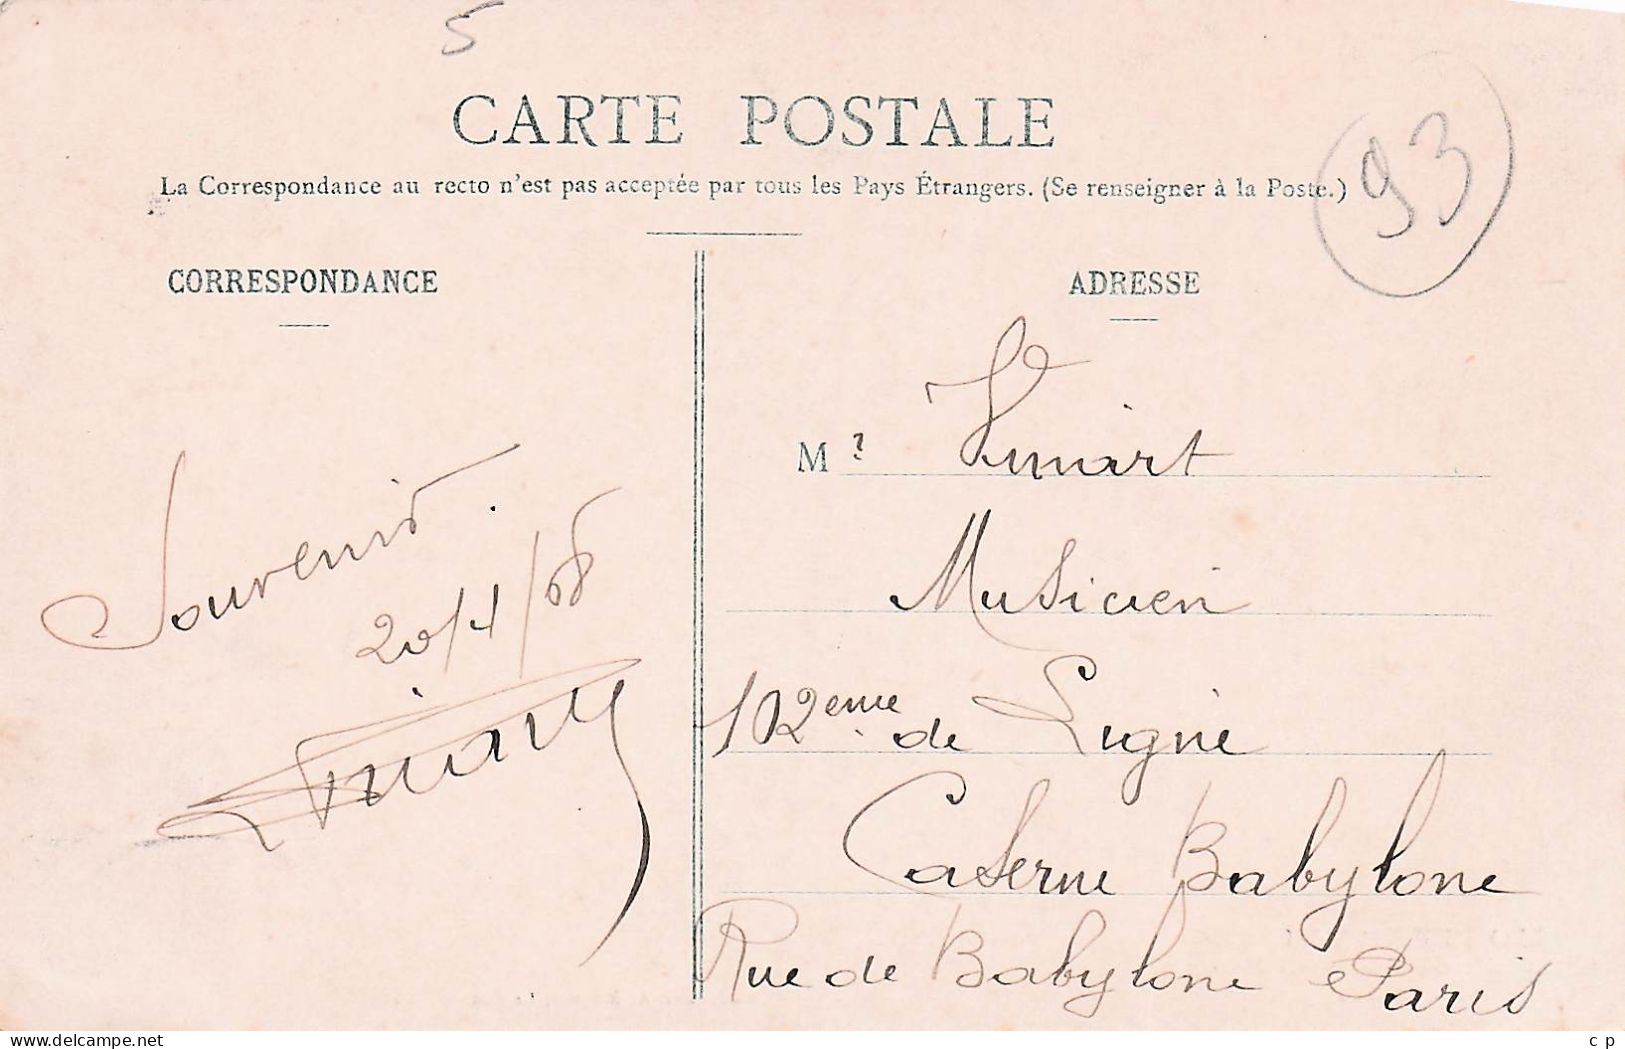 5
CARTE POSTALE
93
La Correspondance au recto n'est pas acceptée par tous les Pays Étrangers. (Se renseigner à la Poste.)
CORRESPONDANCE
Souvenir.
20/4/08
ADRESSE
Mr
Musicien
102eme de Ligne
Caserne Babylone
Rue de Babylone Paris
www.delcampe.net
c p